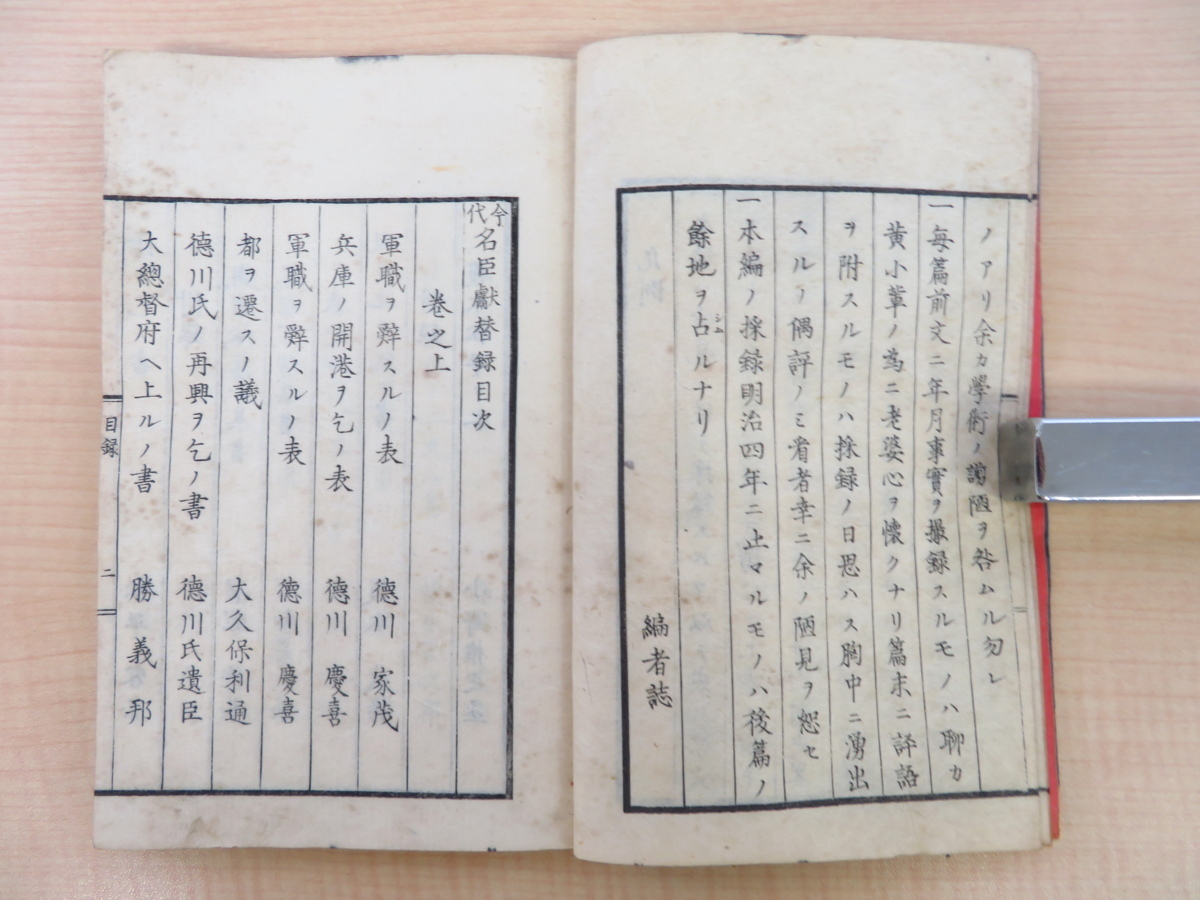 ノアリ余カ學術ノ謭陋ヲ咎ムル勿レ
一每篇前文ニ年月事實ヲ撮録スルモノハ聊カ
黄小輩ノ為ニ老婆心ヲ懐クナリ篇末ニ評語
ヲ附スルモノハ採録ノ日思ハス胸中ニ湧出
スルノ偶評ノミ看者幸ニ余ノ陋見ヲ恕セ
一本編ノ採録明治四年ニ止マルモノハ後篇ノ
餘地ヲ占シムルナリ
編者誌
今代名臣獻替録目次
卷之上
軍職ヲ辭スルノ表 德川家茂
兵庫ノ開港ヲ乞ノ表 德川慶喜
軍職ヲ辭スルノ表 德川慶喜
都ヲ遷スノ議 大久保利通
德川氏ノ再興ヲ乞ノ書 德川氏遺臣
大總督府ヘ上ルノ書 勝義邦
目録 二